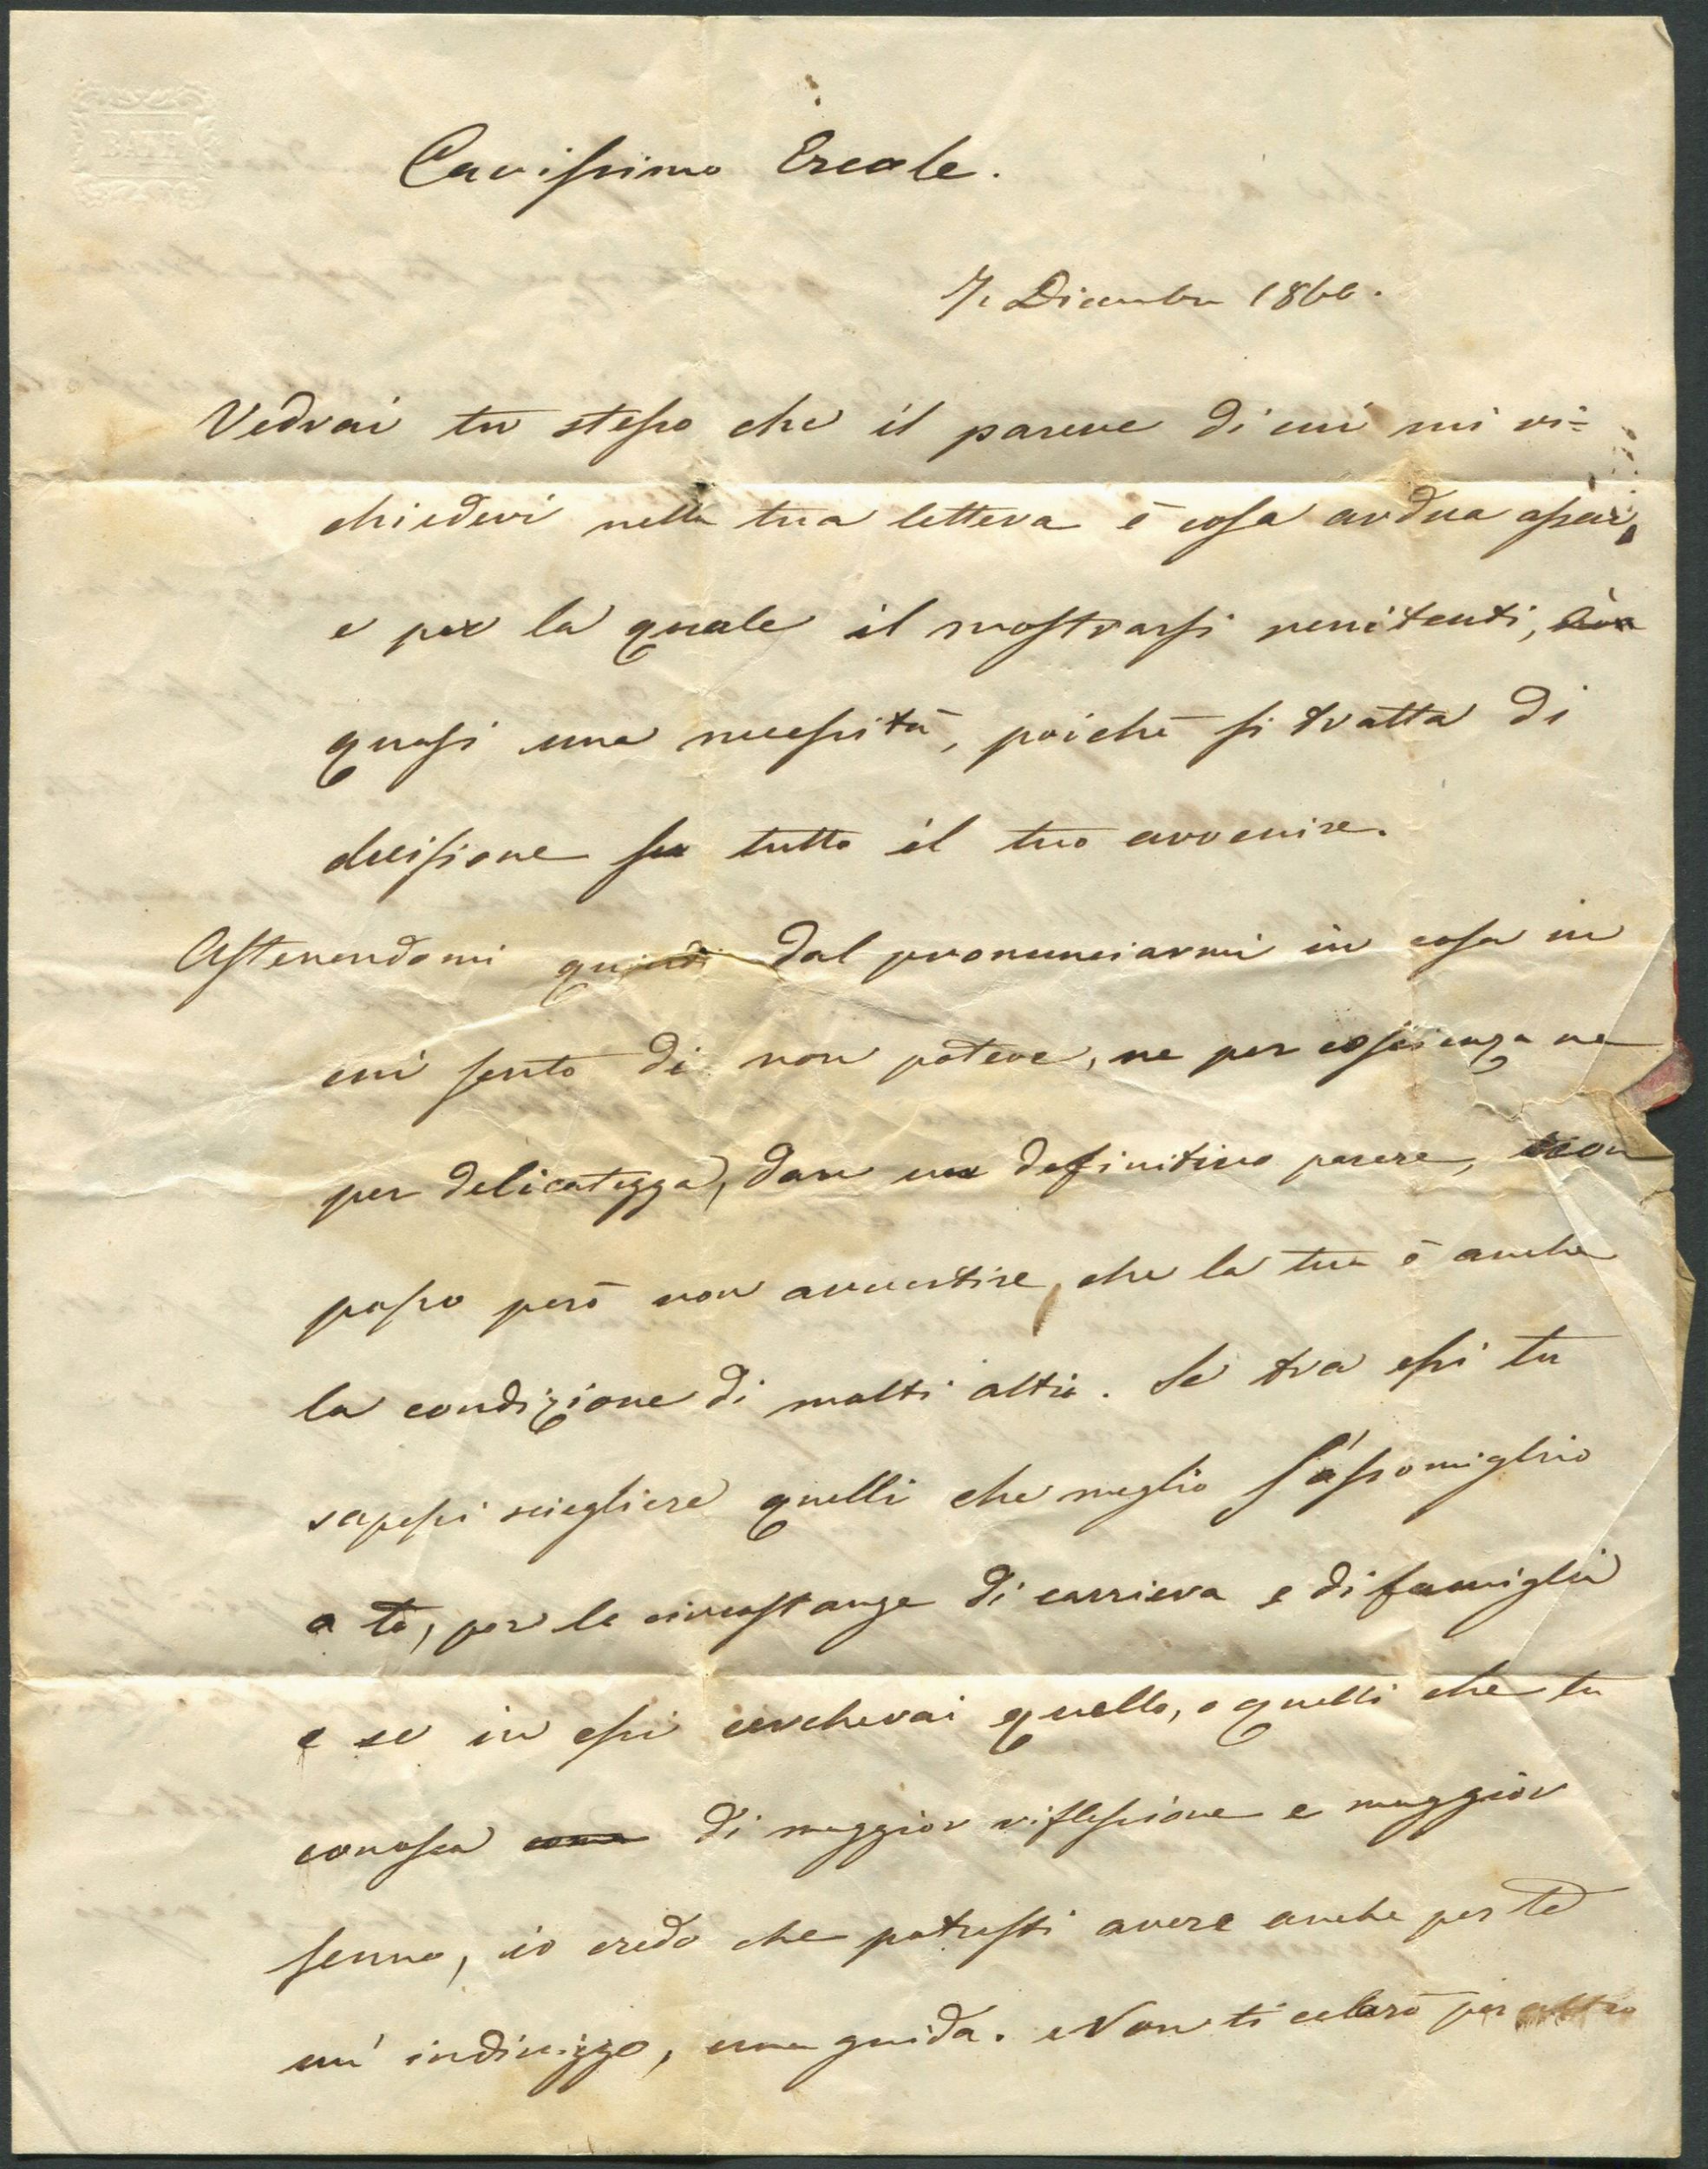 BATH
Carissimo Ercole.
7. Dicembre 1866.
Vedrai tu stesso che il parere di cui mi ri=
chiedevi nella tua lettera è cosa ardua assai,
e per la quale il mostrarsi renitenti, è
quasi una necessità, poichè si tratta di
decisione su tutto il tuo avvenire.
Astenendomi quindi dal pronunciarmi in cosa in
cui sento di non potere, ne per coscienza ne
per delicatezza, dare un definitivo parere, non
posso però non avvertire, che la tua è anche
la condizione di molti altri. Se tra essi tu
sapessi sciegliere quelli che meglio s'assomiglino
a te, per le circostanze di carriera e di famiglia
e se in essi cercherai quello, o quelli che tu
conosca di maggior riflessione e maggior
senno, io credo che potresti avere anche per te
un' indirizzo, una guida. Non ti celerò per altro